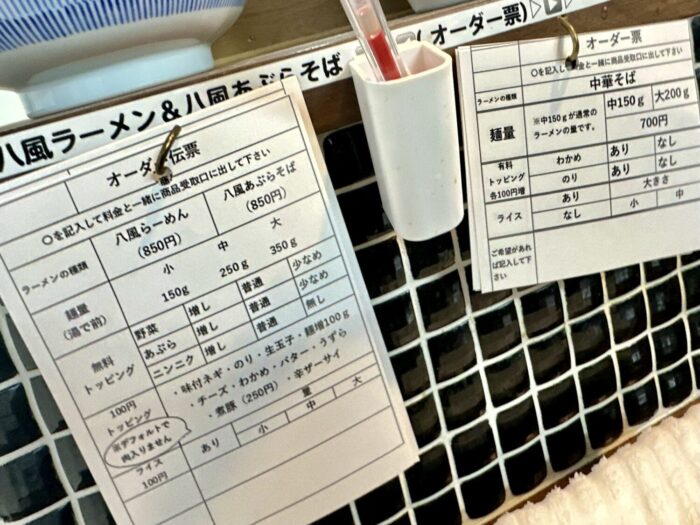 八風ラーメン＆八風あぶらそば
(オーダー票)
オーダー伝票
〇を記入して料金と一緒に商品受取口に出して下さい
ラーメンの種類
八風らーめん
(850円)
八風あぶらそば
(850円)
麺量
(湯で前)
小 中 大
150g 250g 350g
無料
トッピング
野菜 増し 普通 少なめ
あぶら 増し 普通 少なめ
ニンニク 増し 普通 無し
100円
トッピング
※デフォルトで
肉入りません
・味付ネギ・のり・生玉子・麺増100g
・チーズ・わかめ・バター・うずら
・煮豚(250円)・辛ザーサイ
ライス
100円
量
あり 小 中 大
オーダー票
〇を記入して料金と一緒に商品受取口に出して下さい
ラーメンの種類
中華そば
麺量
※中150gが通常の
ラーメンの量です。
中150g 大200g
700円
有料
トッピング
各100円増
わかめ あり なし
のり あり なし
ライス
あり
なし
大きさ
小 中
ご希望があれ
ば記入して下
さい